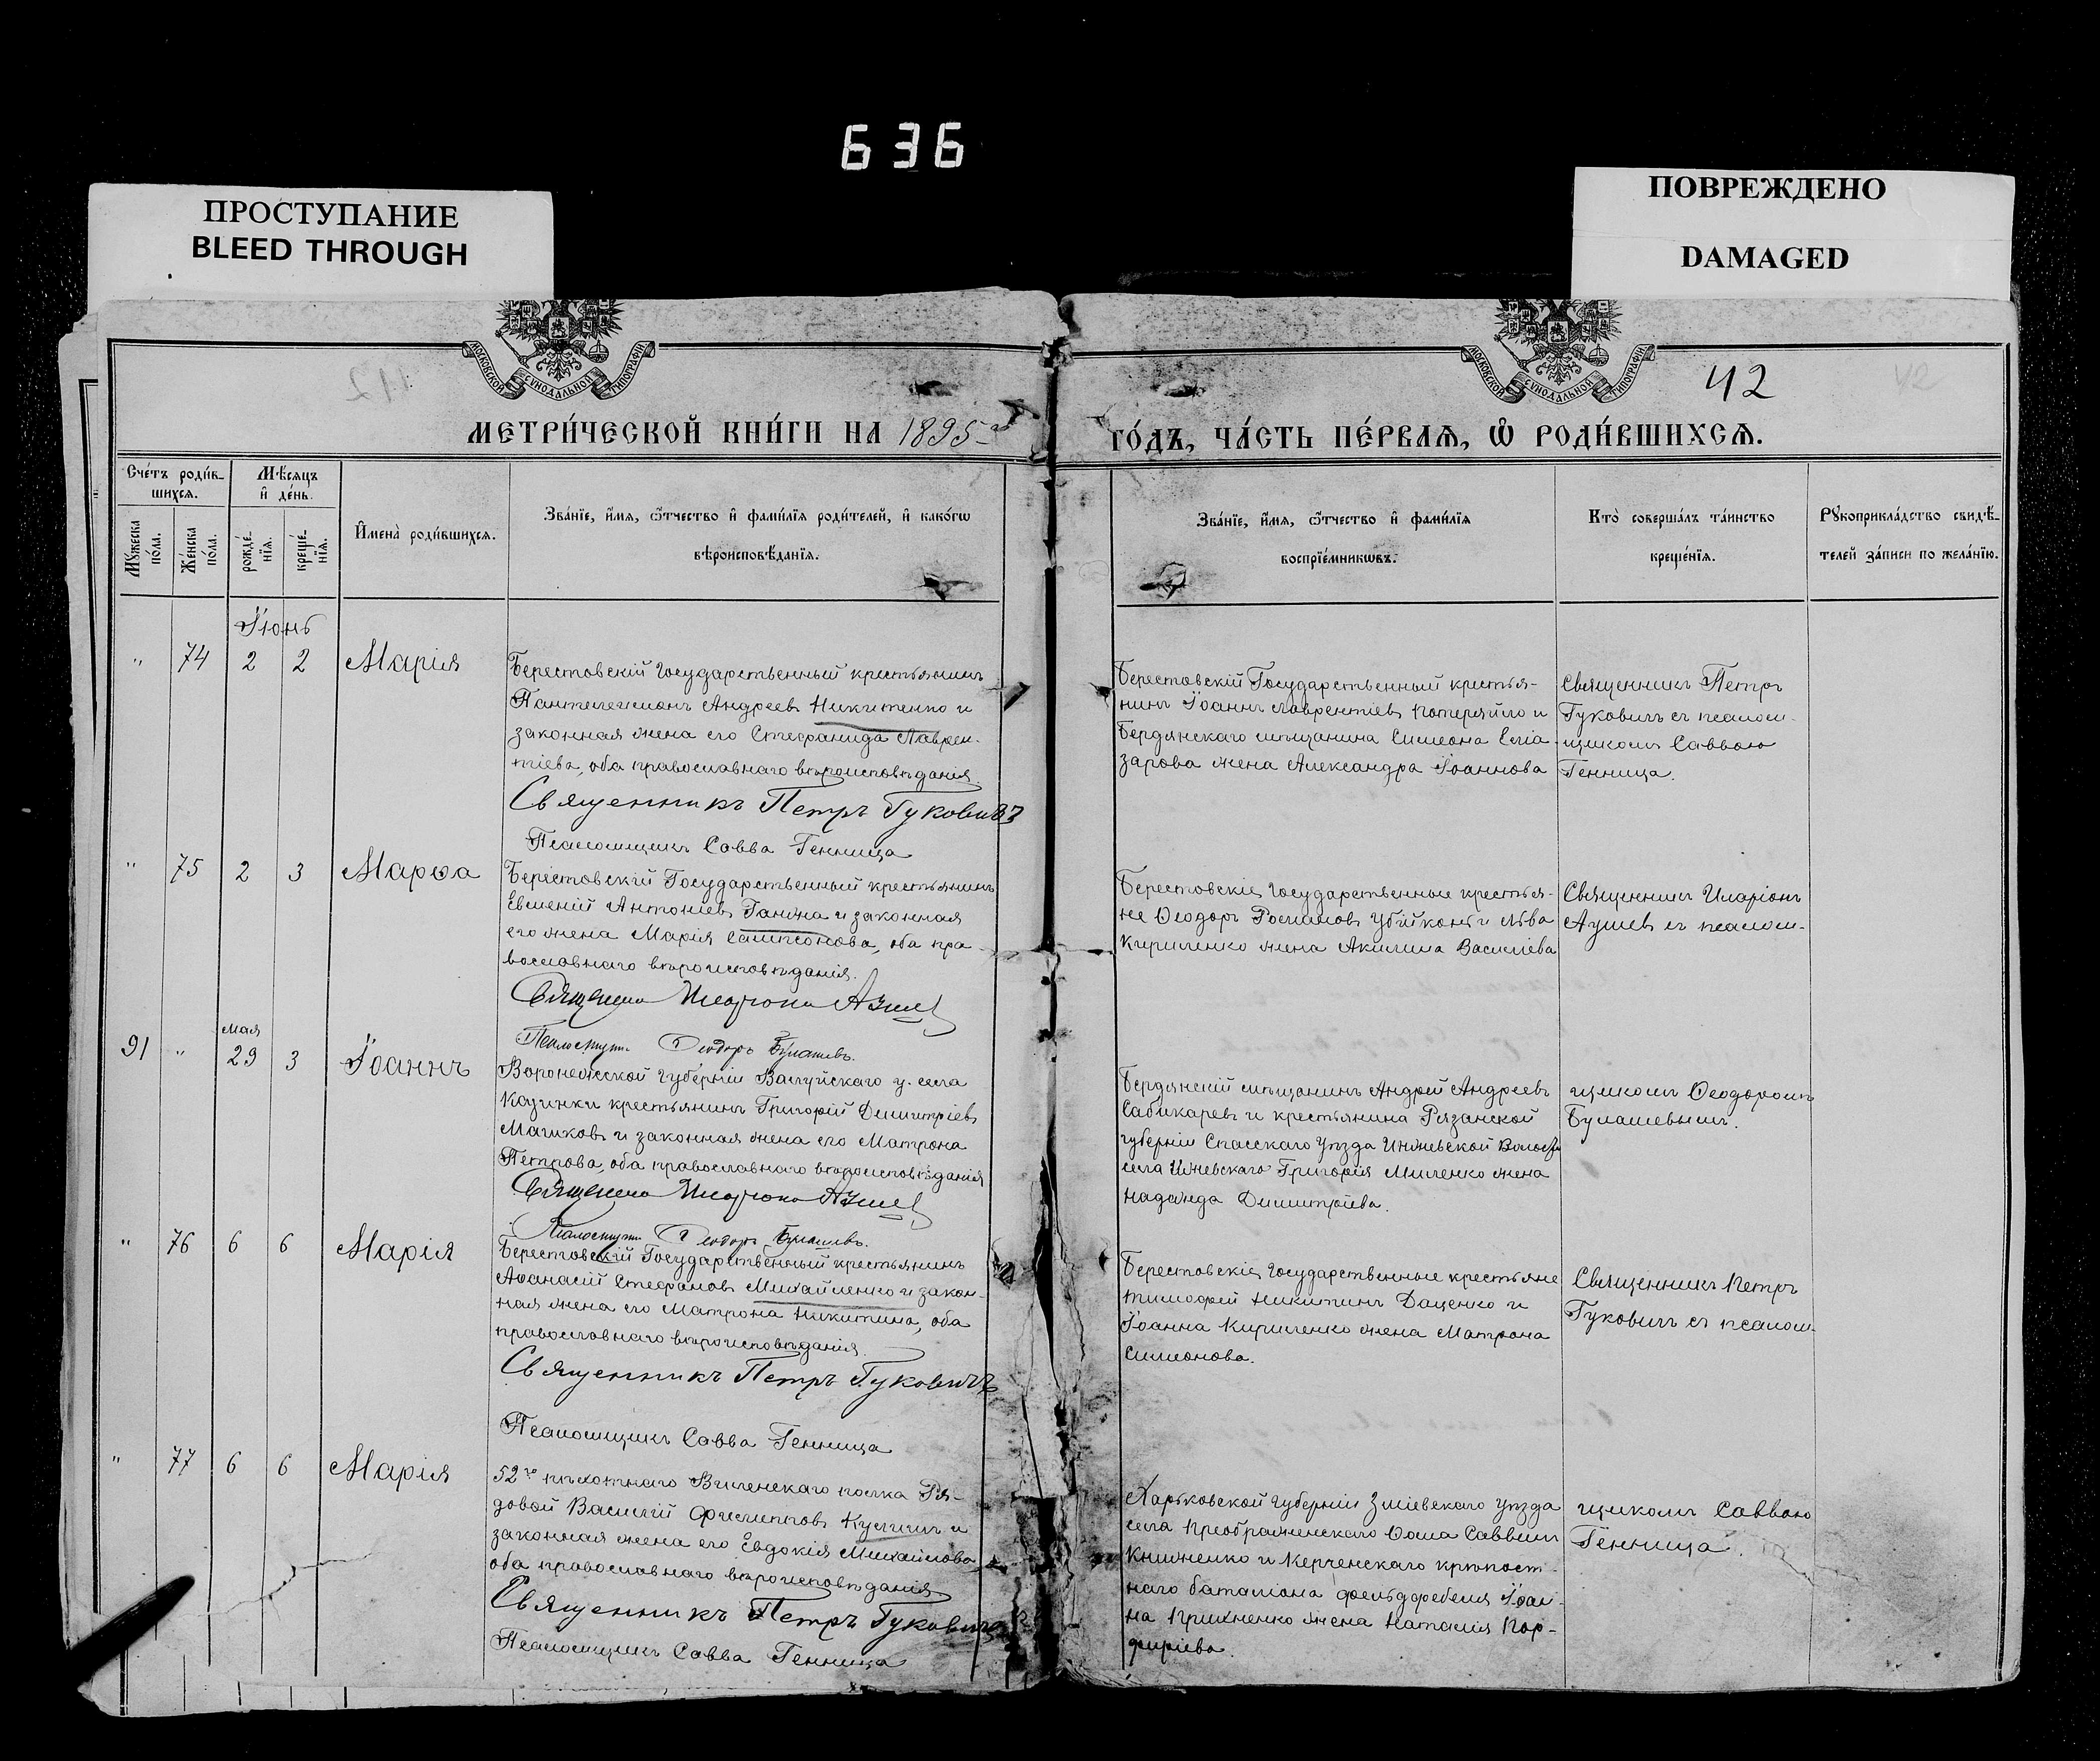 636
ПРОСТУПАНИЕ
BLEED THROUGH
ПОВРЕЖДЕНО
DAMAGED
МОСКОВСКОЙ СѴНОДАЛЬНОЙ ТИПОГРАФІИ
МОСКОВСКОЙ СѴНОДАЛЬНОЙ ТИПОГРАФІИ
42
МЕТРИ́ЧЕСКОЙ КНИ́ГИ НА 1895-й
ГО́ДЪ, ЧА́СТЬ ПЕ́РВАѦ, Ѽ РОДИ́ВШИХСѦ.
Сче́тъ роди́в-
шихсѧ.
Мѣ́сѧцъ
и҆ де́нь.
Мꙋ́жеска
по́ла.
Же́нска
по́ла.
рожде́-
нїѧ.
креще́-
нїѧ.
И҆мена̀ роди́вшихсѧ.
Зва́нїе, и҆́мѧ, ѻ҆́тчество и҆ фами́лїѧ роди́телей, и҆ како́гѡ
вѣроисповѣ́данїѧ.
Зва́нїе, и҆́мѧ, ѻ҆́тчество и҆ фами́лїѧ
воспрїе́мникѡвъ.
Кто̀ соверша́лъ та́инство
креще́нїѧ.
Рꙋкоприкла́дство свидѣ́-
телей за́писи по жела́нїю.
Іюнь
" 74 2 2 Марія
Берестовскій Государственный крестьянинъ
Пантелеимонъ Андреевъ Никитенко и
законная жена его Стефанида Лаврен-
тіева, оба православнаго вѣроисповѣданія.
Священникъ Петръ Гуковичъ
Псаломщикъ Савва Генница
Берестовскій Государственный крестья-
нинъ Іоаннъ Лаврентіевъ Потеряйло и
Бердянскаго мѣщанина Симеона Елиа-
зарова жена Александра Іоаннова
Священникъ Петръ
Гуковичъ съ псалом-
щикомъ Саввою
Генница.
" 75 2 3 Марѳа
Берестовскій Государственный крестьянинъ
Евмений Антоніевъ Ганжа и законная
его жена Марія Сампсонова, оба пра-
вославнаго вѣроисповѣданія.
Священникъ Иларіонъ
Псаломщик Ѳеодоръ Булашевъ.
Берестовскіе Государственные крестья-
не Ѳеодоръ Романовъ Убійконь и Льва
Кириленко жена Акилина Василіева
Священникъ Иларіонъ
съ псалом-
91 " Мая 29 3 Іоаннъ
Воронежской губерніи Валуйскаго у. села
Казинки крестьянинъ Григорій Димитріевъ
и законная жена его Матрона
Петрова, оба православнаго вѣроисповѣданія
Священникъ Иларіонъ
Псаломщик Ѳеодоръ Булашевъ.
Бердянскій мѣщанинъ Андрей Андреевъ
и крестьянина Рязанской
губерніи Спасскаго уѣзда Ижевской Волости
села Ижевскаго Григорія Миленко жена
Надежда Димитріева.
щикомъ Ѳеодоромъ
Булашевымъ.
" 76 6 6 Марія
Берестовскій Государственный крестьянинъ
Аѳанасій Стефановъ Михайленко и закон-
ная жена его Матрона Никитина, оба
православнаго вѣроисповѣданія.
Священникъ Петръ Гуковичъ
Псаломщикъ Савва Генница
Берестовскіе Государственные крестьяне
Тимоѳей Никитинъ Даценко и
Іоанна Кириленко жена Матрона
Симеонова.
Священникъ Петръ
Гуковичъ съ псалом-
" 77 6 6 Марія
52го пѣхотнаго Виленскаго полка Ря-
довой Василій Филипповъ и
законная жена его Евдокія Михайлова
оба православнаго вѣроисповѣданія
Священникъ Петръ Гуковичъ
Псаломщикъ Савва Генница
Харьковской губерніи Зміевскаго уѣзда
села Преображенскаго Ѳома Саввинъ
Книженко и Керченскаго крѣпост-
наго баталіона фельдфебеля Іоан-
на Крихненко жена Наталія Пор-
фиріева.
щикомъ Саввою
Генница.